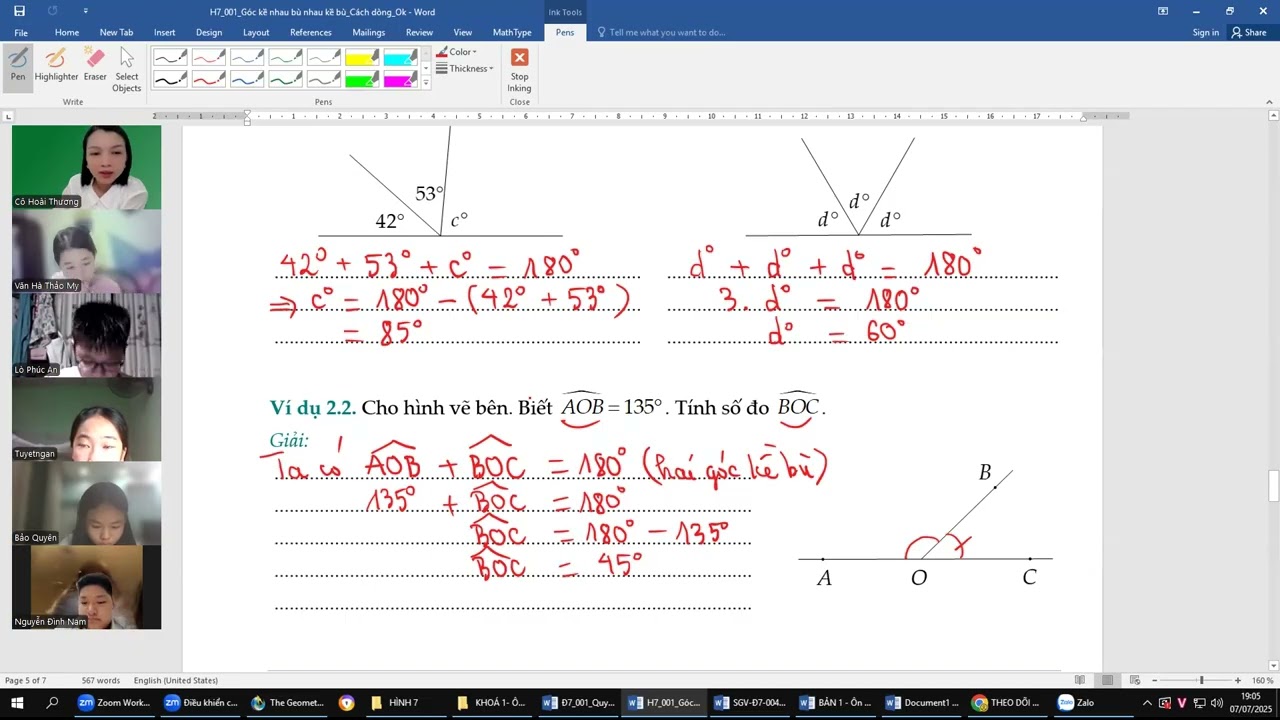 H7_001_Góc kề nhau bù nhau kề bù_Cách dòng_Ok - Word
Ink Tools
File Home New Tab Insert Design Layout References Mailings Review View MathType Pens Tell me what you want to do... Sign in Share
Pen Highlighter Eraser Select Objects
Color
Thickness
Stop Inking
Write Pens Close
2 1 1 2 3 4 5 6 7 8 9 10 11 12 13 14 15 16 17
Cô Hoài Thương
Văn Hà Thảo My
Lò Phúc An
Tuyetngan
Bảo Quyên
Nguyễn Đình Nam
53°
42° c°
d° d° d°
42° + 53° + c° = 180°
⇒ c° = 180° - (42° + 53°)
= 85°
d° + d° + d° = 180°
3. d° = 180°
d° = 60°
Ví dụ 2.2. Cho hình vẽ bên. Biết AOB = 135°. Tính số đo BOC.
Giải:
Ta có AOB + BOC = 180° (hai góc kề bù)
135° + BOC = 180°
BOC = 180° - 135°
BOC = 45°
B
A O C
Page 5 of 7 567 words English (United States) 160 %
Zoom Work... Điều khiển c... The Geome... HÌNH 7 KHOÁ 1- Ô... Đ7_001_Quy... H7_001_Góc... SGV-Đ7-004... BẢN 1 - Ôn ... Document1 ... THEO DÕI ... Zalo
19:05
07/07/2025